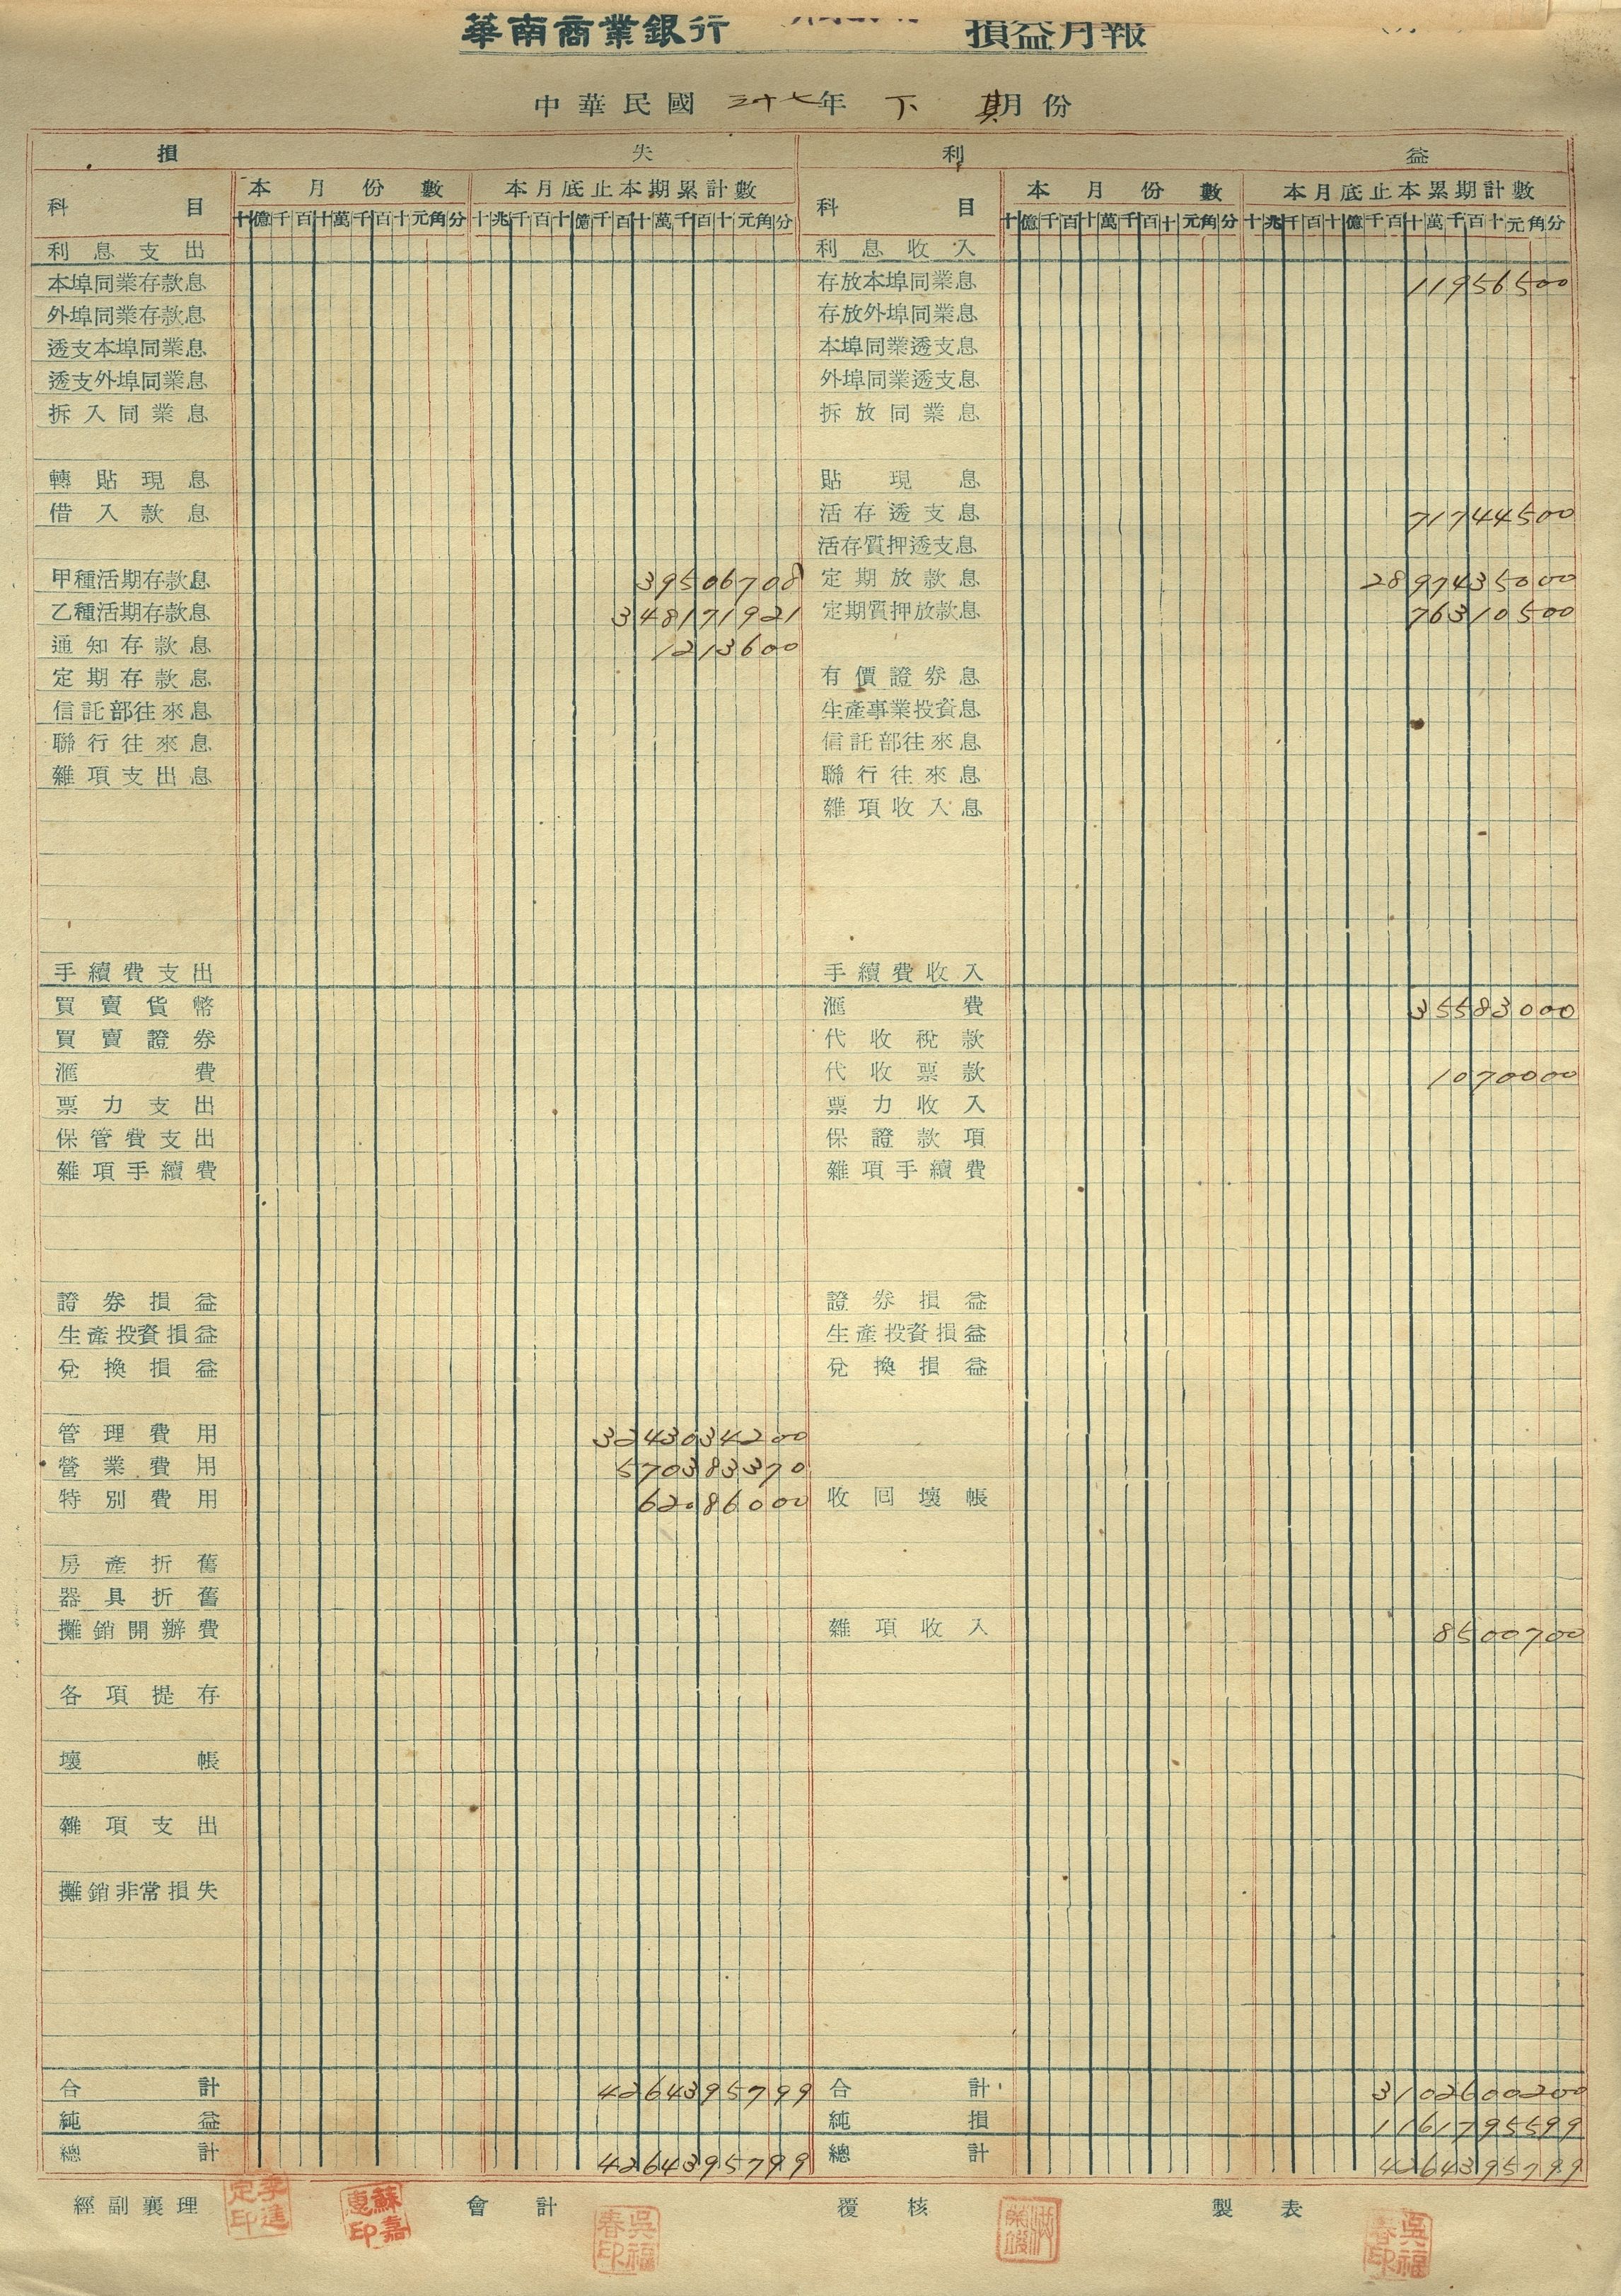 華南商業銀行 損益月報
中華民國 三十七年 下 期月份
損 失 利 益
科目 本月份數 本月底止本期累計數 科目 本月份數 本月底止本累期計數
十億千百十萬千百十元角分 十兆千百十億千百十萬千百十元角分 十億千百十萬千百十元角分 十兆千百十億千百十萬千百十元角分
利息支出 利息收入
本埠同業存款息 存放本埠同業息 11956500
外埠同業存款息 存放外埠同業息
透支本埠同業息 本埠同業透支息
透支外埠同業息 外埠同業透支息
拆入同業息 拆放同業息
轉貼現息 貼現息
借入款息 活存透支息 71744500
活存質押透支息
甲種活期存款息 39506708 定期放款息 2897435000
乙種活期存款息 348171921 定期質押放款息 76310500
通知存款息 1213600
定期存款息 有價證券息
信託部往來息 生產事業投資息
聯行往來息 信託部往來息
雜項支出息 聯行往來息
雜項收入息
手續費支出 手續費收入
買賣貨幣 滙費 35583000
買賣證券 代收稅款
滙費 代收票款 1070000
票力支出 票力收入
保管費支出 保證款項
雜項手續費 雜項手續費
證券損益 證券損益
生產投資損益 生產投資損益
兌換損益 兌換損益
管理費用 3243034200
營業費用 570383370
特別費用 62086000 收囘壞帳
房產折舊
器具折舊
攤銷開辦費 雜項收入 8500700
各項提存
壞帳
雜項支出
攤銷非常損失
合計 4264395799 合計 3102600200
純益 純損 1161795599
總計 4264395799 總計 4264395799
經副襄理 李進定印 蘇嘉惠印 會計 吳福春印 覆核 製表 吳福春印